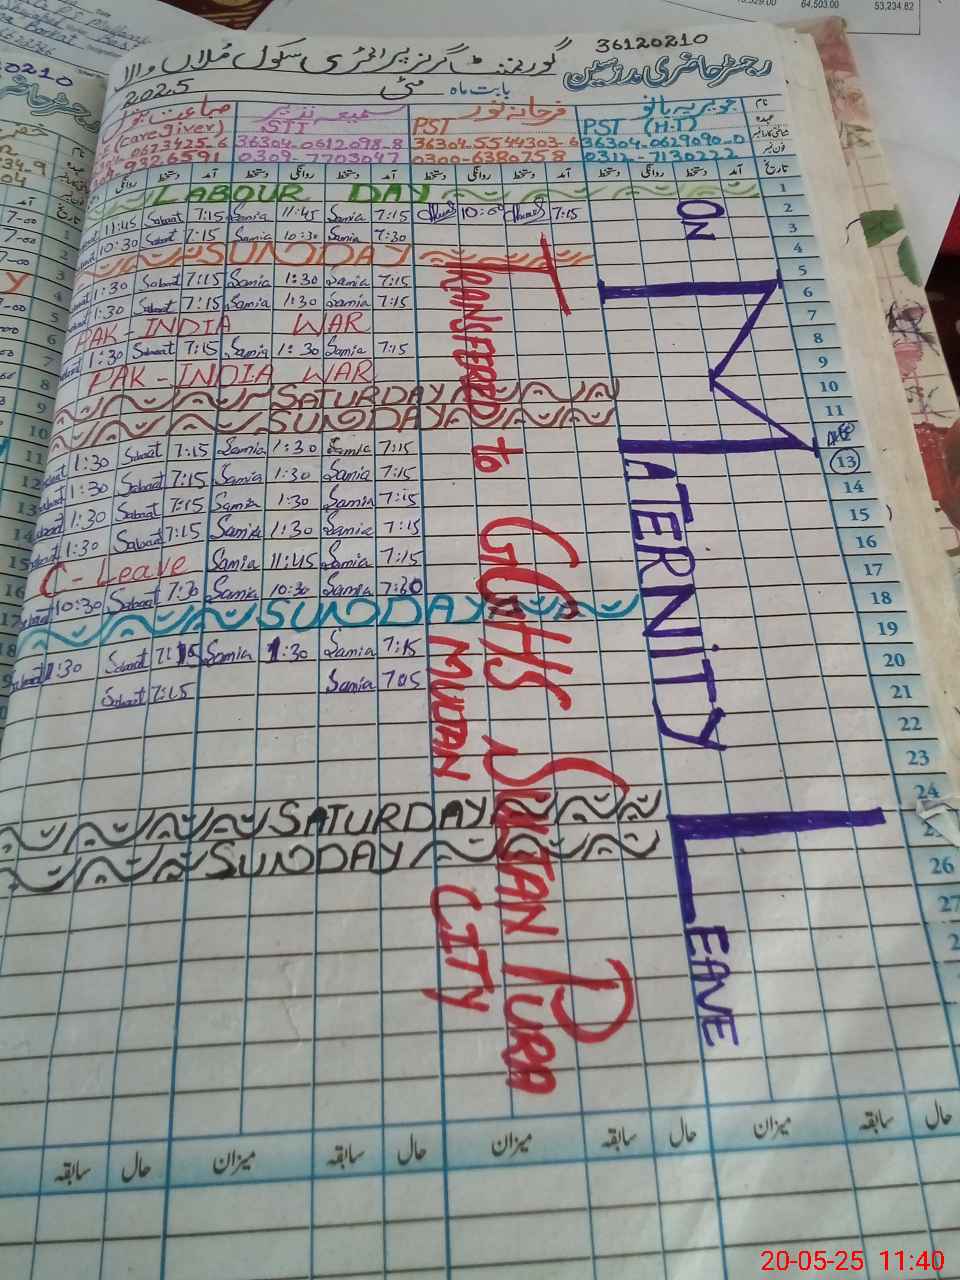 64,503.00 53,234.82
36120210
رجسٹر حاضری مدرسین
گورنمنٹ گرلز پرائمری سکول مُلاں والا
بابت ماہ مئی 2025
نام جویریہ بانو فرحانہ نور سمیعہ نذیر
عہدہ PST (H-T) PST STI (care giver)
36304-0629090-0 36304-5544303-6 36304-0612098-8
فون نمبر 0312-7130222 0300-6380758 0309-7703047
تاریخ آمد دستخط روانگی دستخط آمد دستخط روانگی دستخط آمد دستخط روانگی دستخط آمد دستخط روانگی
LABOUR DAY 1
11:45 Sabaat 7:15 Samia 11:45 Samia 7:15 10:00 7:15 2
10:30 Sabaat 7:15 Samia 10:30 Samia 7:30 3
SUNDAY 4
1:30 Sabaat 7:15 Samia 1:30 Samia 7:15 5
1:30 Sabaat 7:15 Samia 1:30 Samia 7:15 6
PAK-INDIA WAR 7
1:30 Sabaat 7:15 Samia 1:30 Samia 7:15 8
PAK-INDIA WAR 9
SATURDAY 10
SUNDAY 11
1:30 Sabaat 7:15 Samia 1:30 Samia 7:15
1:30 Sabaat 7:15 Samia 1:30 Samia 7:15 13
1:30 Sabaat 7:15 Samia 1:30 Samia 7:15 14
1:30 Sabaat 7:15 Samia 1:30 Samia 7:15 15
C-Leave Samia 11:45 Samia 7:15 16
10:30 Sabaat 7:30 Samia 10:30 Samia 7:30 17
SUNDAY 18
1:30 Sabaat 7:15 Samia 1:30 Samia 7:15 19
Sabaat 7:15 Samia 7:05 20
21
22
23
SATURDAY 24
SUNDAY
26
27
ON MATERNITY LEAVE
TRANSFERRD to GGHS SULTAN PURA
MULTAN CITY
حال سابقہ میزان حال سابقہ میزان حال سابقہ میزان حال سابقہ
20-05-25 11:40